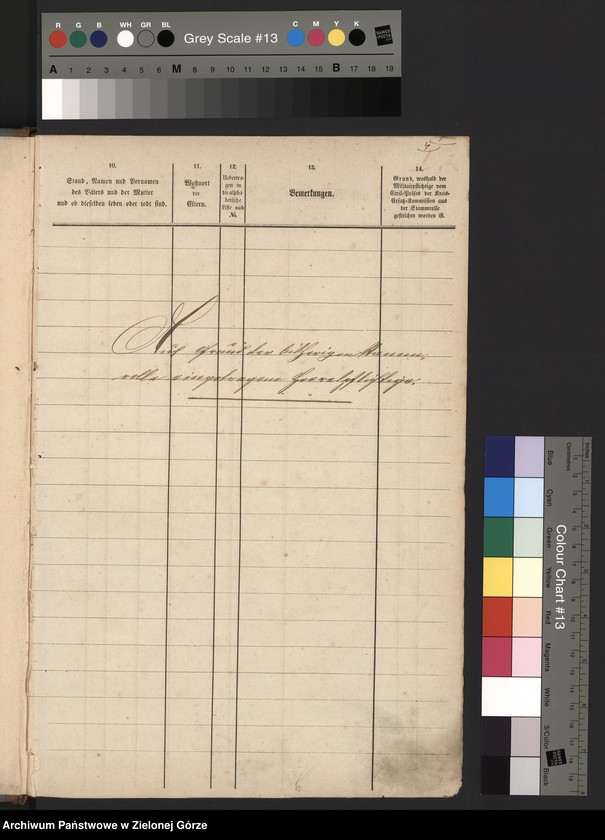 R G B WH GR BL Grey Scale #13 C M Y K
A 1 2 3 4 5 M 8 9 10 11 12 13 14 15 B 17 18 19
10.
Stand, Namen und Vornamen
des Vaters und der Mutter
und ob dieselben leben oder todt sind.
11.
Wohnort
der
Eltern.
12.
Uebertra-
gen in
die alpha-
betische
Liste sub
№.
13.
Bemerkungen.
14.
Grund, weshalb der
Militairpflichtige vom
Civil-Präses der Kreis-
Ersatz-Kommission aus
der Stammrolle
gestrichen worden ist.
Auf Grund der bisherigen Stamm-
rolle eingetragene Heerespflichtige.
6
Colour Chart #13
Blue
Cyan
Green
Yellow
Red
Magenta
White
3/Color
Black
Centimetres
Inches
Archiwum Państwowe w Zielonej Górze